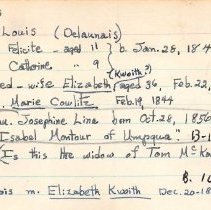 Louis (Delaunais)
Felicite - aged 11 } b. Jan. 28, 184
Catherine, " 9
(Kwoith?)
ed - wife Elizabeth (aged 36, Feb. 22,
Marie Cowlitz Feb. 19, 1844
Josephine Line born Oct. 28, 1856
Isabel Montour of Umpqua" B-1
(Is this the widow of Tom McKa
B. 1
ois m. Elizabeth Kwoith Dec. 20-18